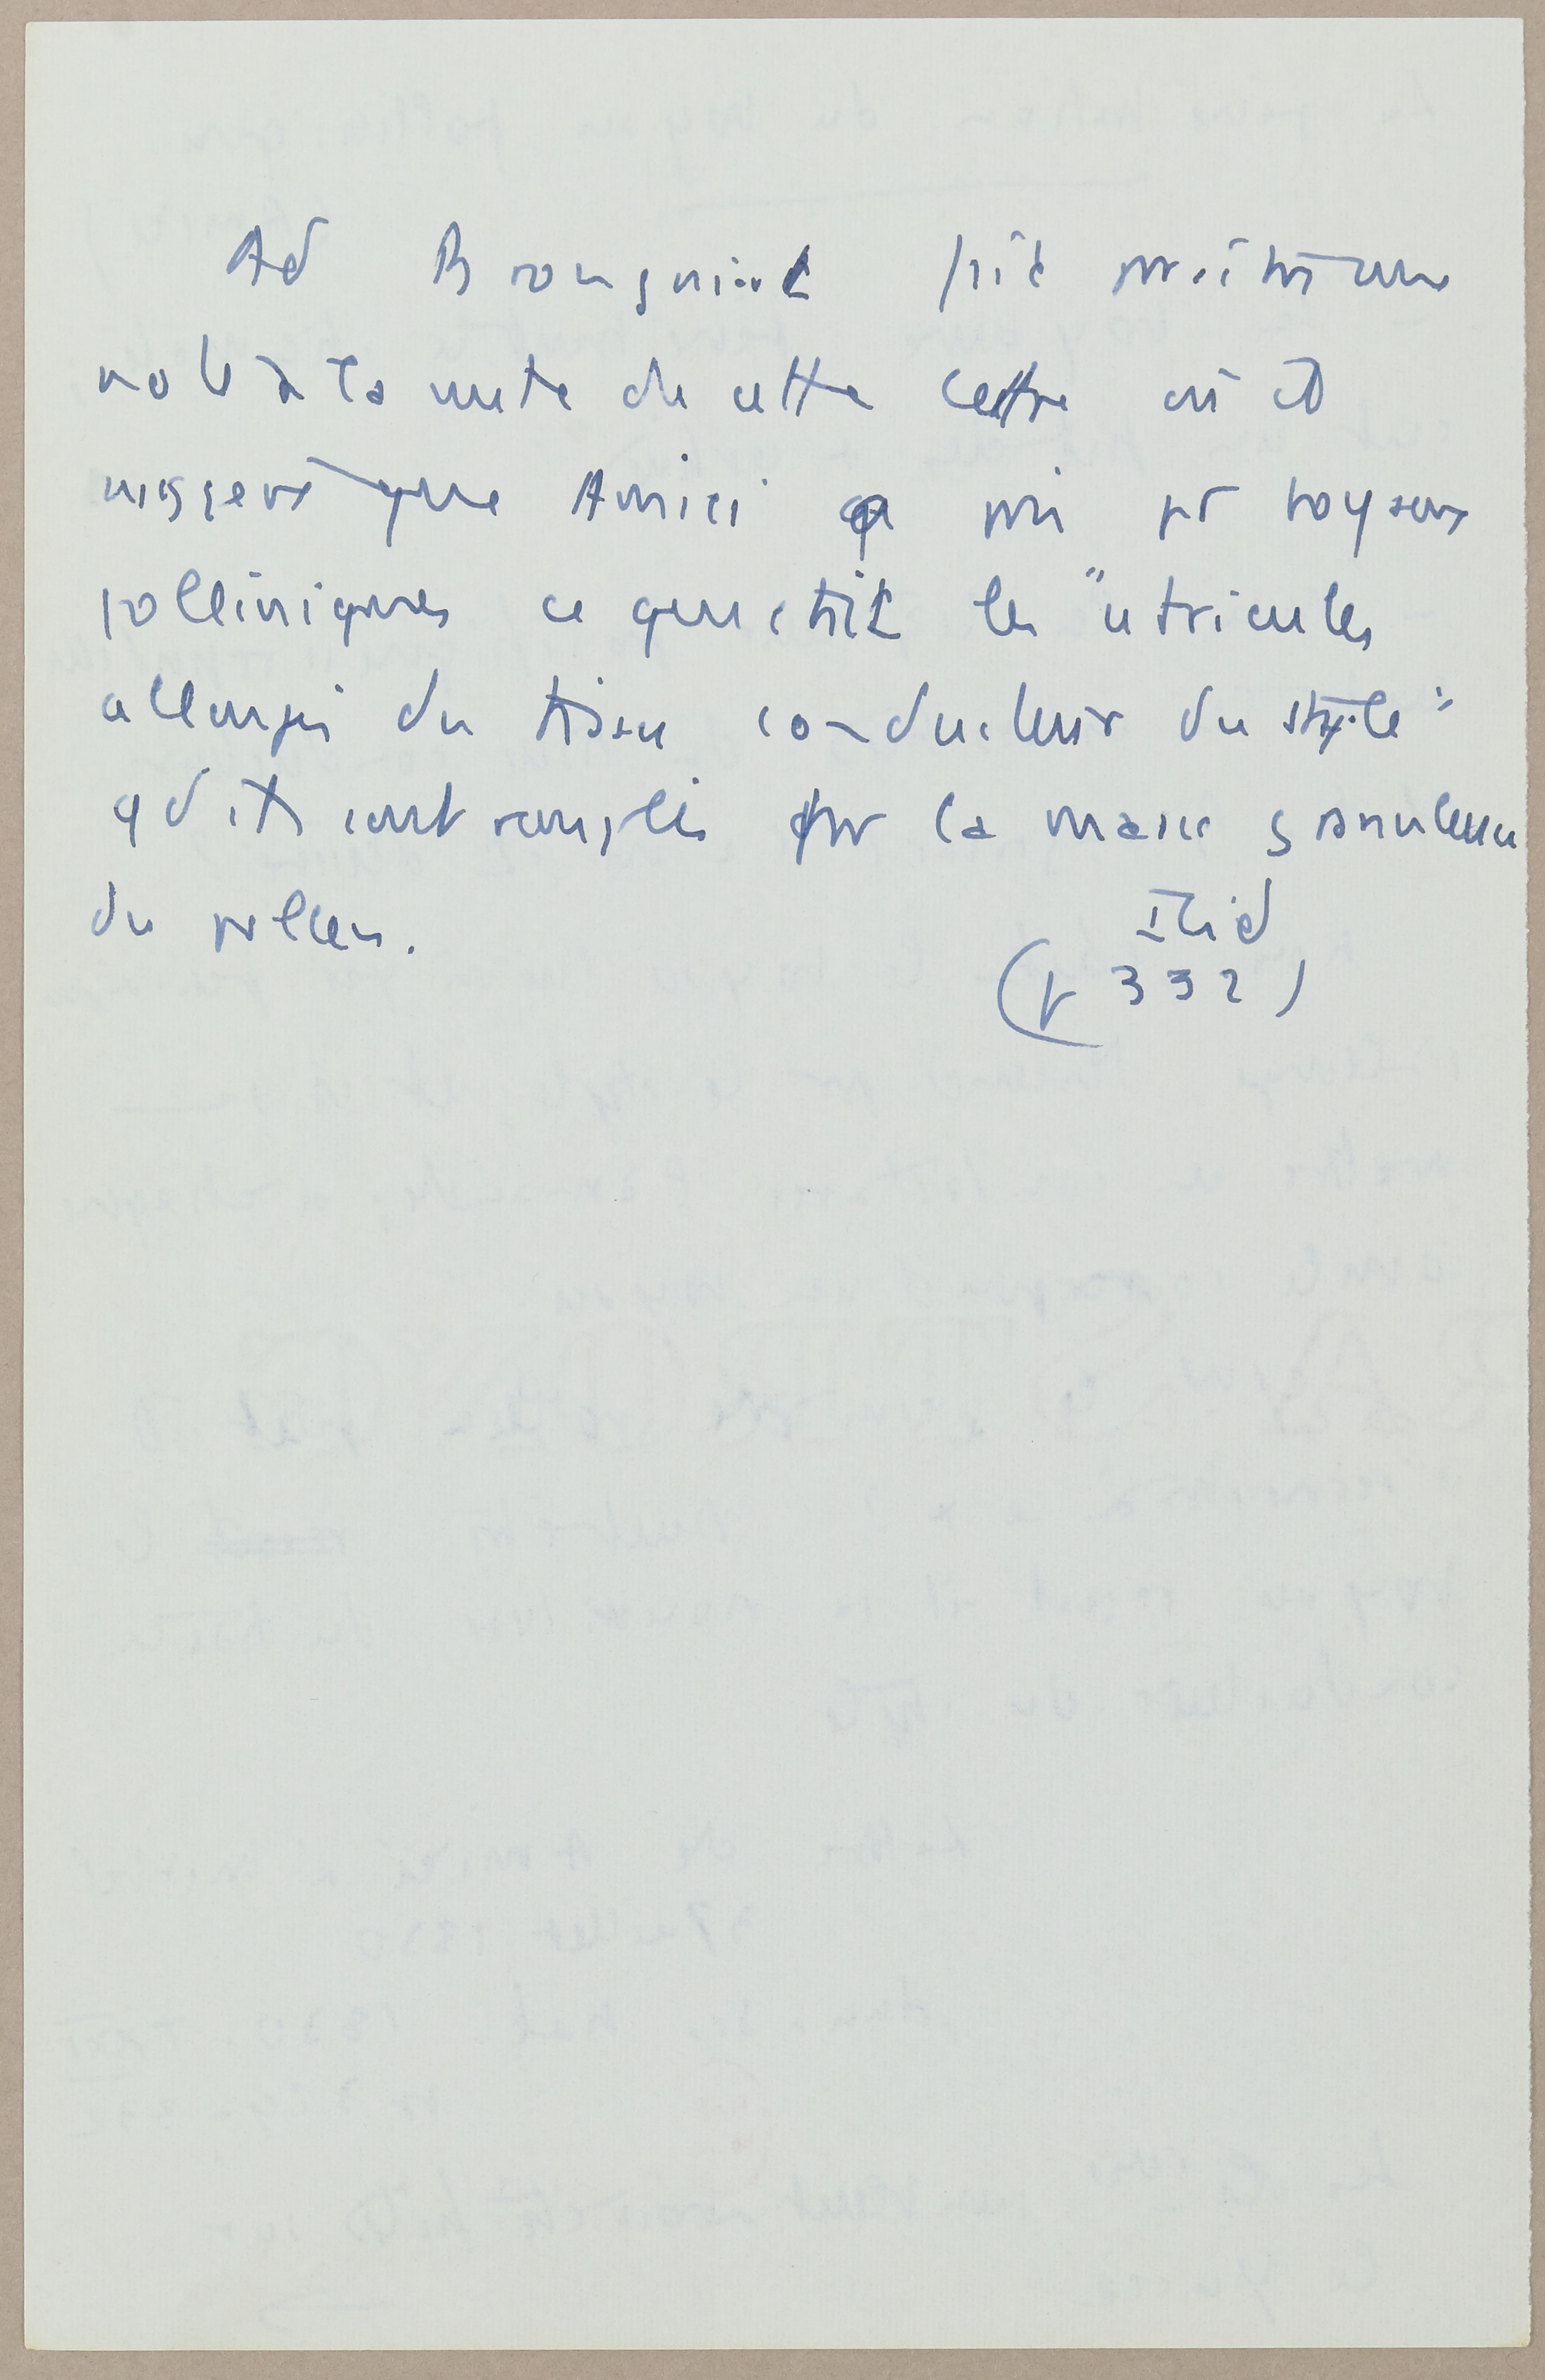 Ad Brongniart fait paraitre une
note à la suite de cette lettre où il
suggère que Amici a pris pr boyaux
polliniques ce qui était les "utricules
allongés du tissu conducteur du style"
qd ils sont remplis par la masse granuleuse
du pollen.
Ibid
(p 332)